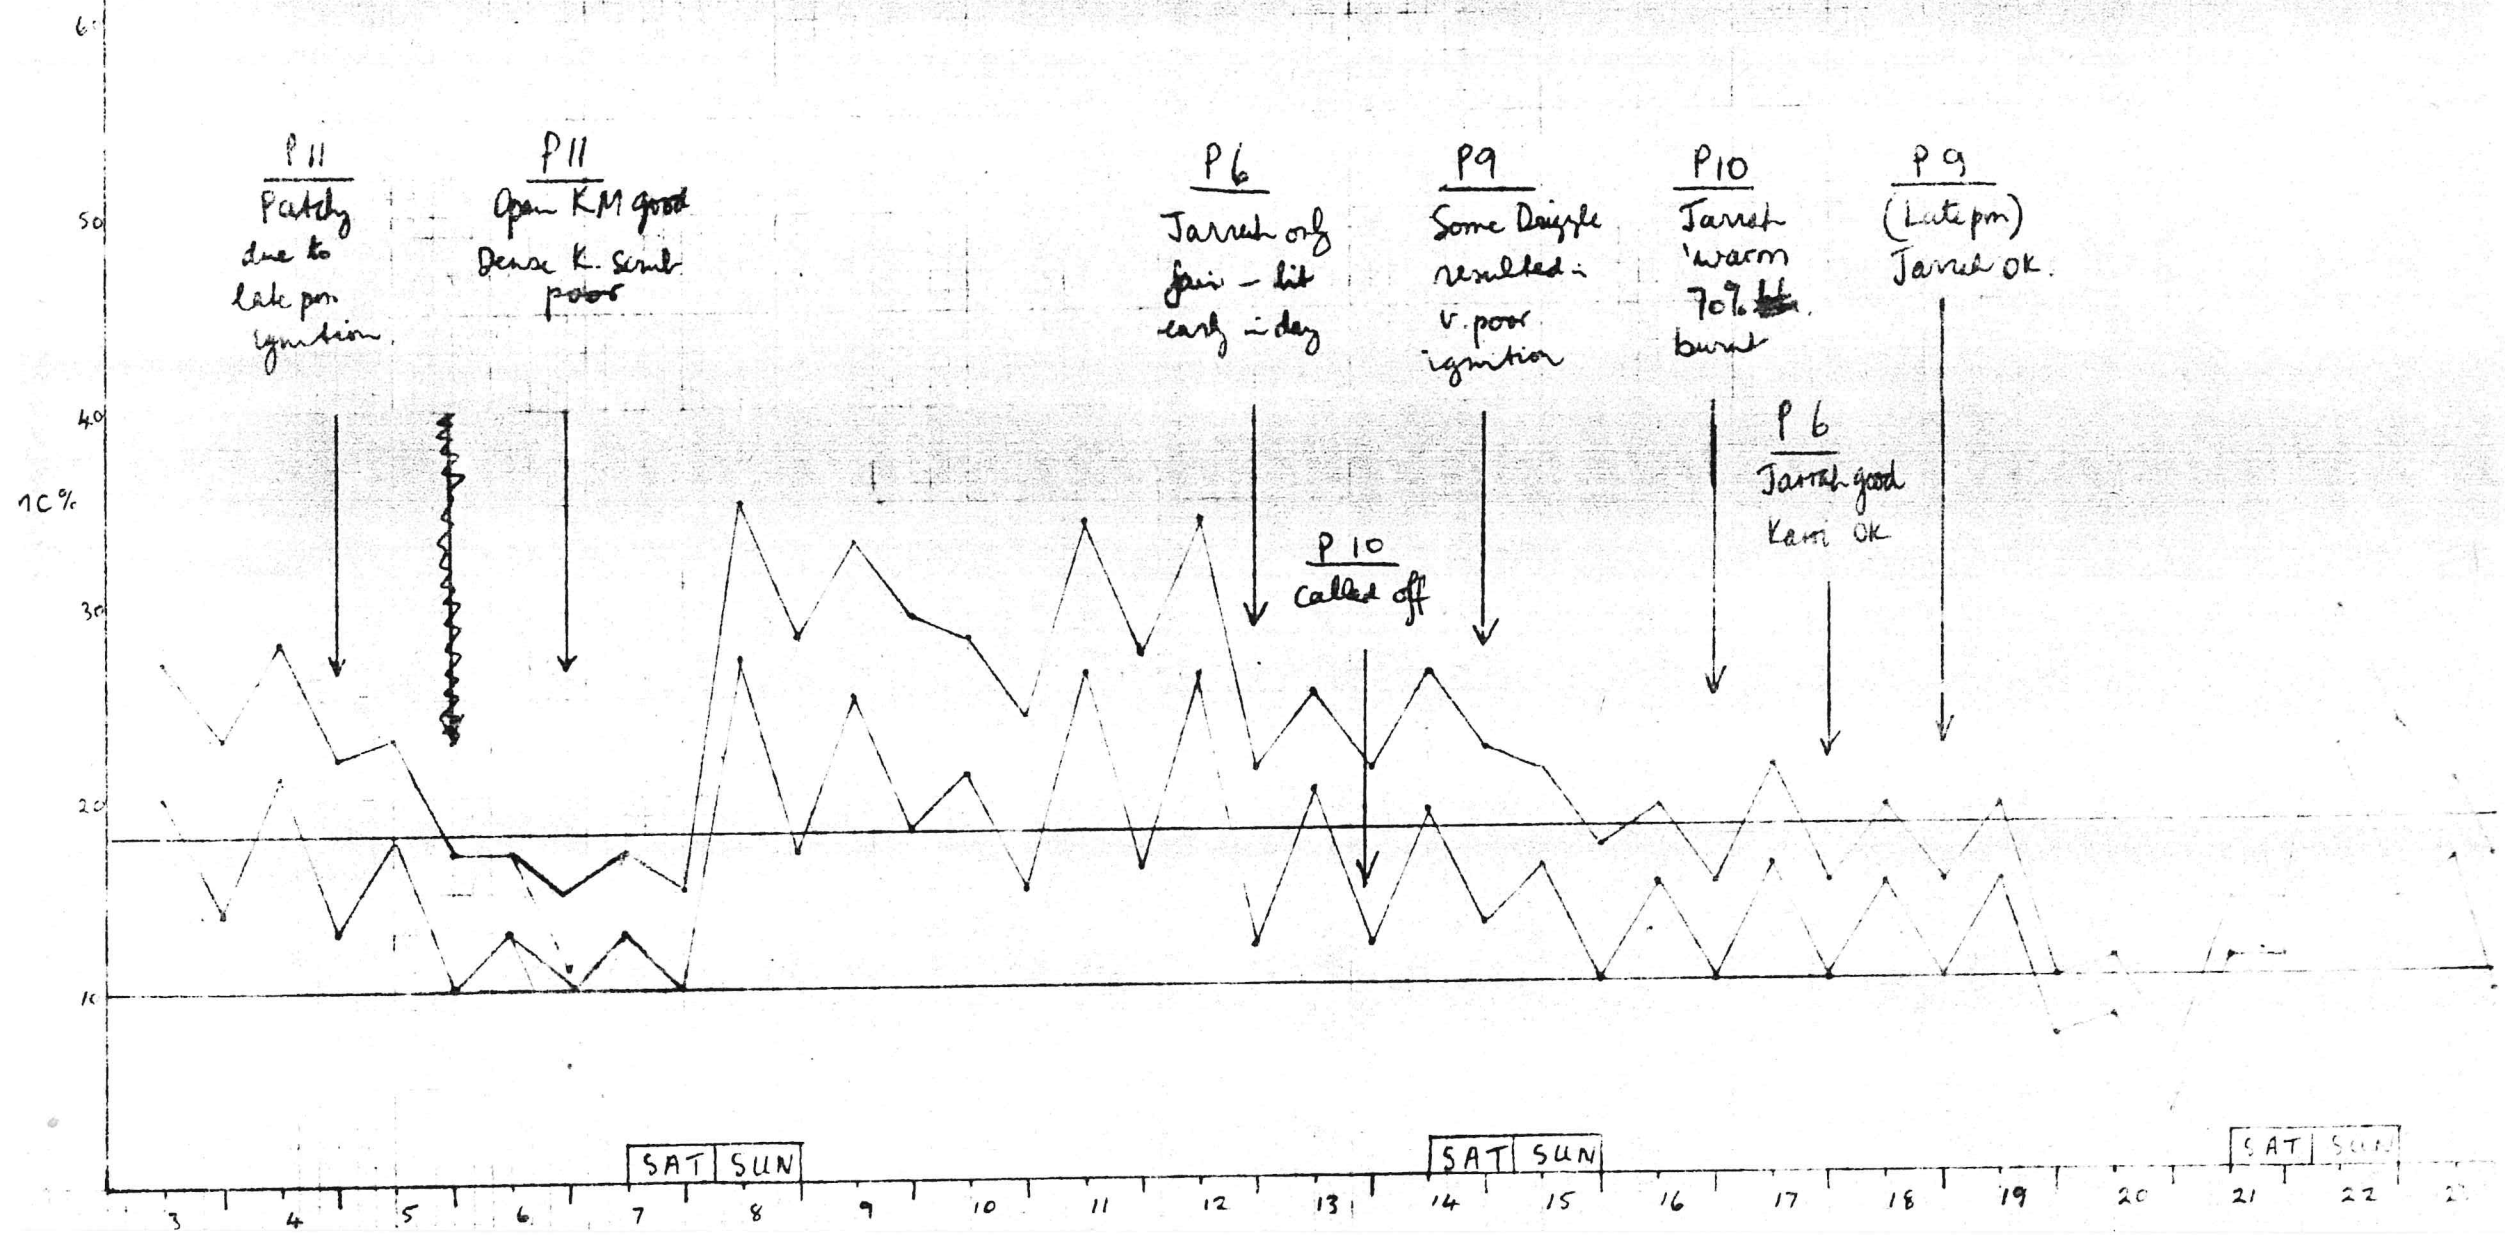 6
P11
Patchy
due to
late pm
ignition.
P11
Open KM good
Dense K. Scrub
poor
P6
Jarrah only
fair - lit
early in day
P9
Some Drizzle
resulted in
v. poor
ignition
P10
Jarrah
'warm
70%
burnt
P9
(Late pm)
Jarrah OK.
50
40
MC%
P6
Jarrah good
Karri OK
P10
Called off
30
20
10
SAT SUN
SAT SUN
SAT SUN
3 4 5 6 7 8 9 10 11 12 13 14 15 16 17 18 19 20 21 22